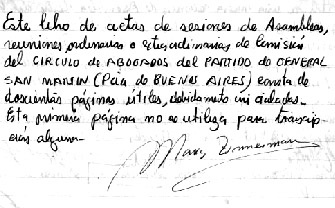 Este libro de actas de sesiones de Asambleas,
reuniones ordinarias o extraordinarias de Comisión
del CIRCULO de ABOGADOS del PARTIDO de GENERAL
SAN MARTIN (Pcia de BUENOS AIRES) consta de
doscientas páginas útiles, debidamente inicialadas.-
Esta primera página no se utiliza para transcrip-
ción alguna.-